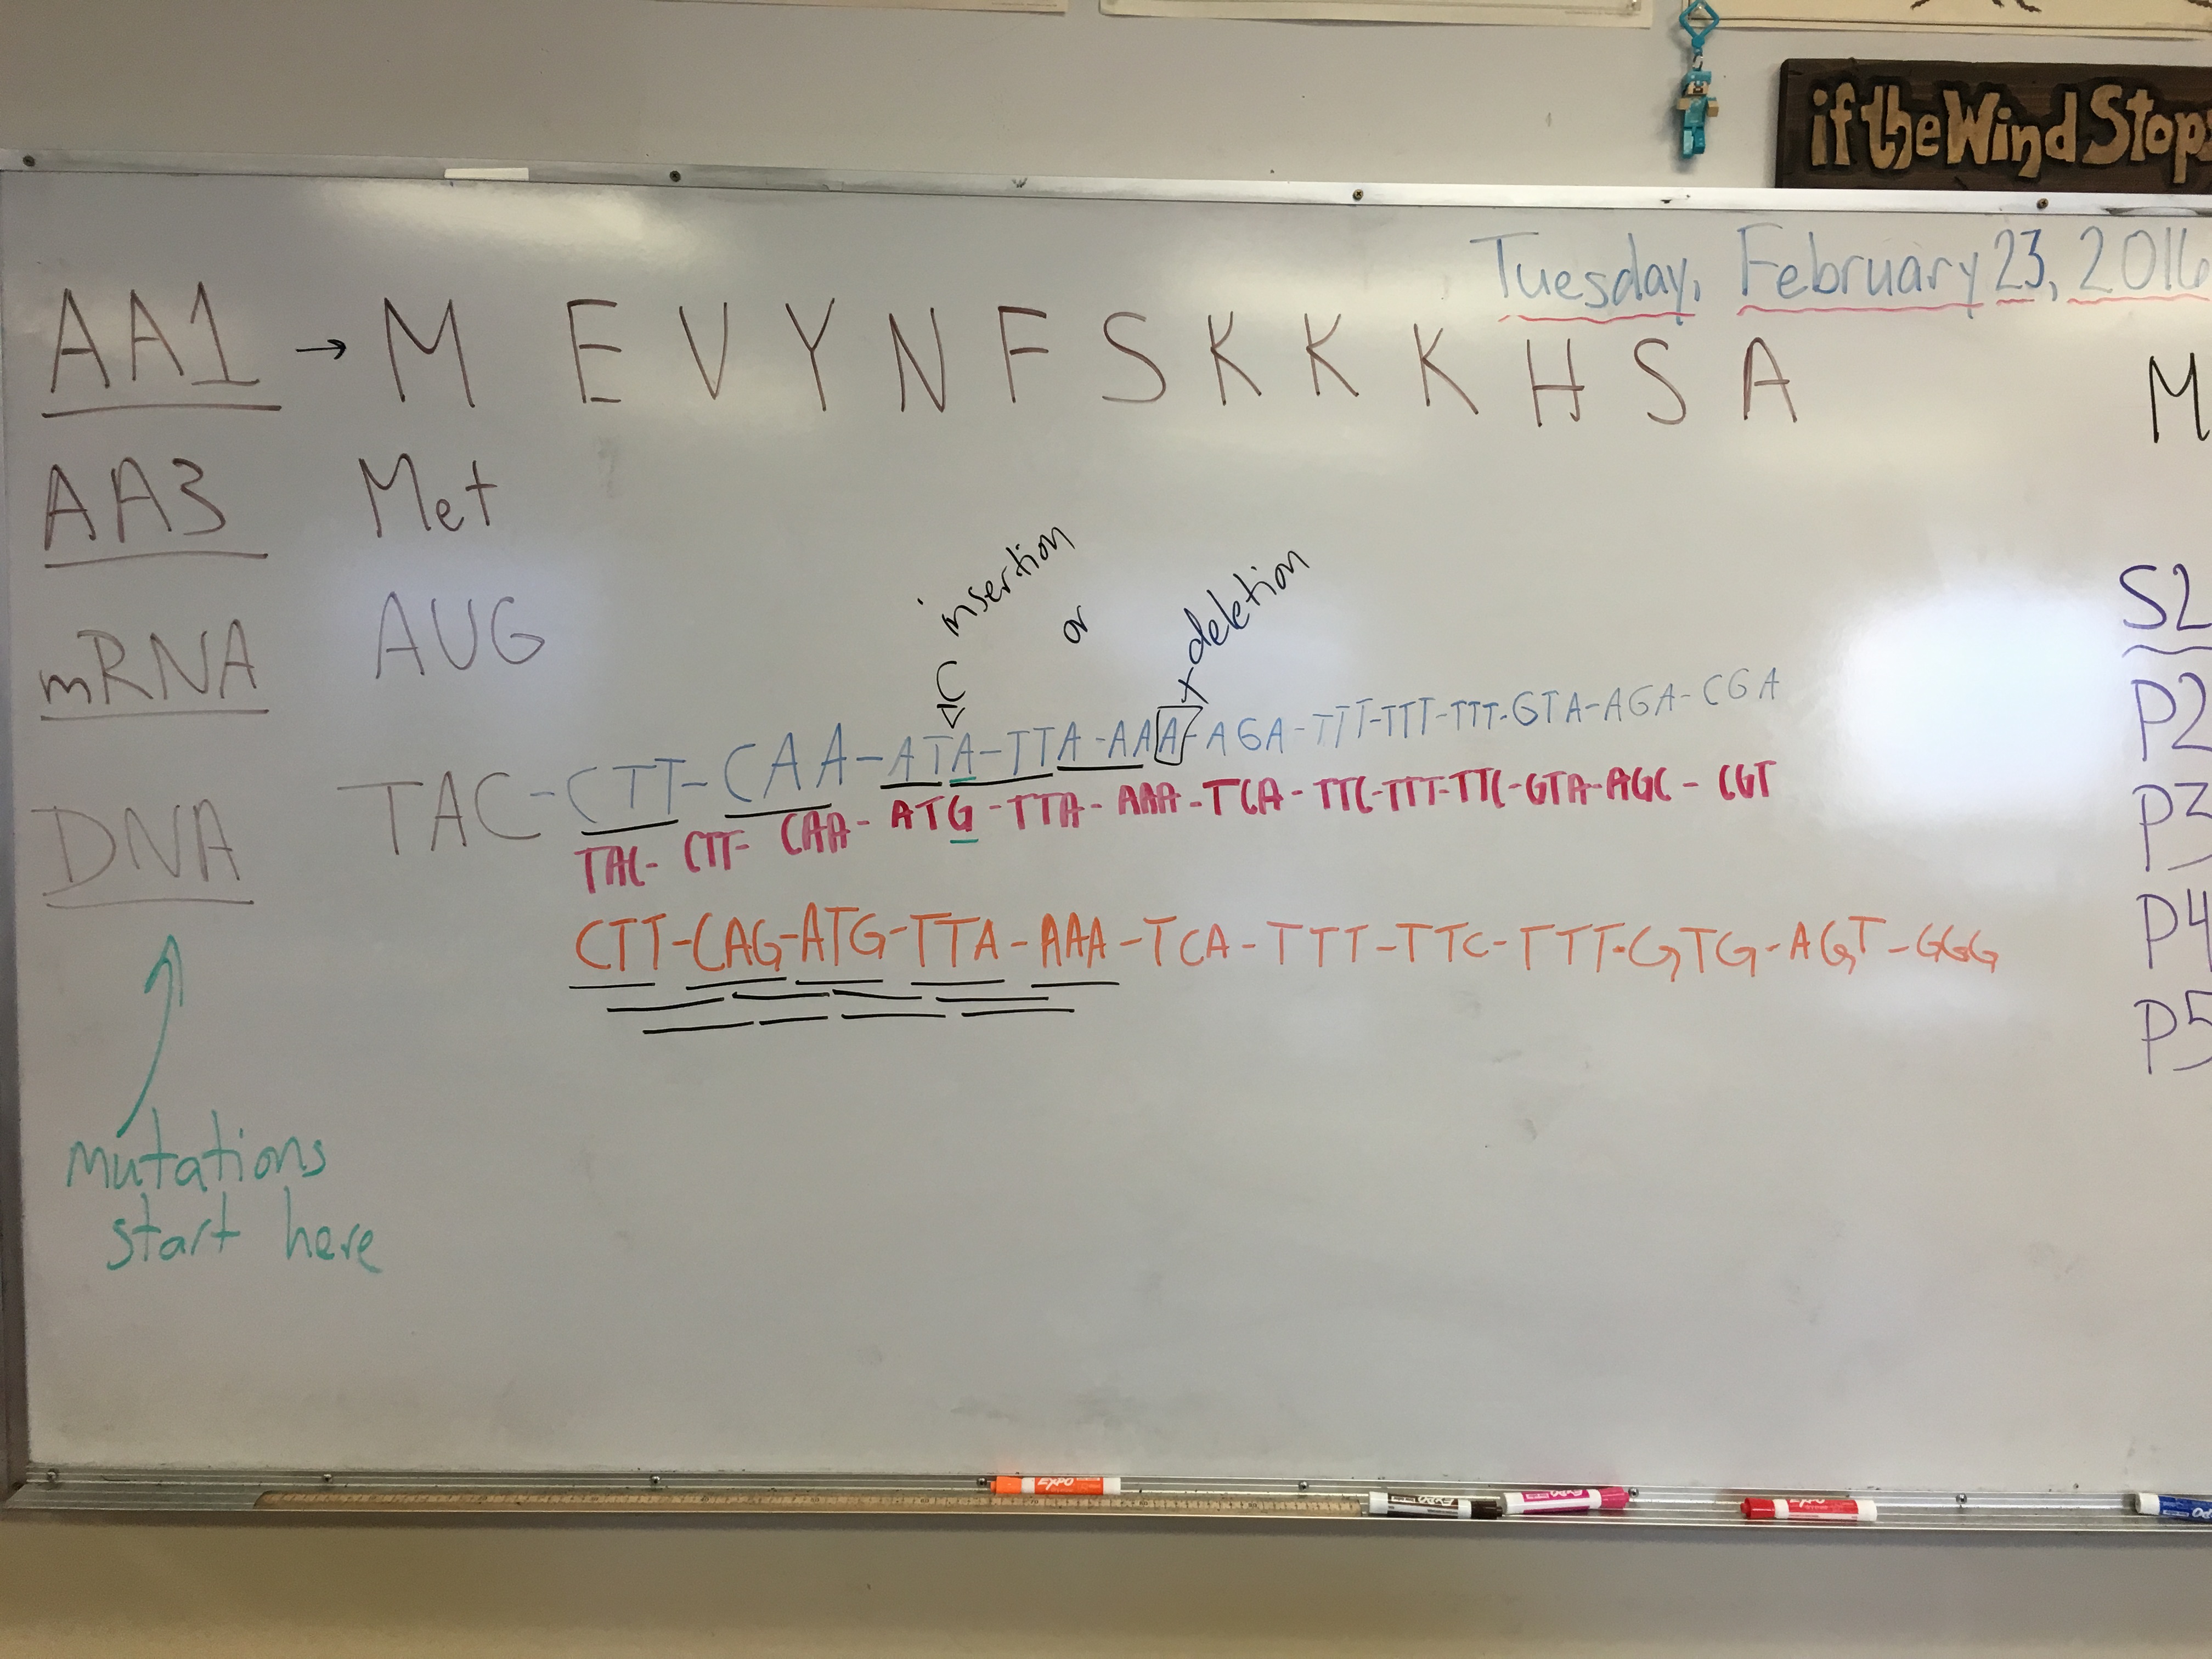 if the Wind Stops
Tuesday, February 23, 2016
AA1 → M E V Y N F S K K K H S A
M
AA3 Met
insertion
or
deletion
mRNA AUG
S2
C
P2
DNA TAC-CTT-CAA-ATA-TTA-AAA-AGA-TTT-TTT-TTT-GTA-AGA-CGA
TAC-CTT-CAA-ATG-TTA-AAA-TCA-TTC-TTT-TTC-GTA-AGC-CGT
P3
CTT-CAG-ATG-TTA-AAA-TCA-TTT-TTC-TTT-GTG-AGT-GGG
P4
P5
mutations
start here
EXPO
EXPO
EXPO
EXPO